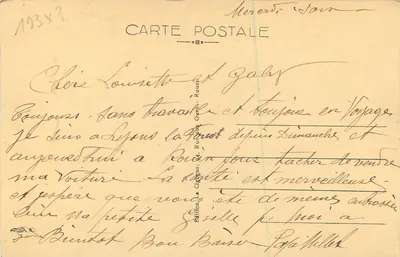 193x?
Mercredi Soir
CARTE POSTALE
Chère Lourette et Gaby
Toujours sans travailler et toujours en Voyage
je suis a Lyons la Foret depuis Dimanche et
aujourd'hui a Rouen pour tacher de vendre
ma Voiture La santé est merveilleuse
et espère que vous été de meme embrasse
ma petite Gisèle pr moi a
Bientot Bon Baiser